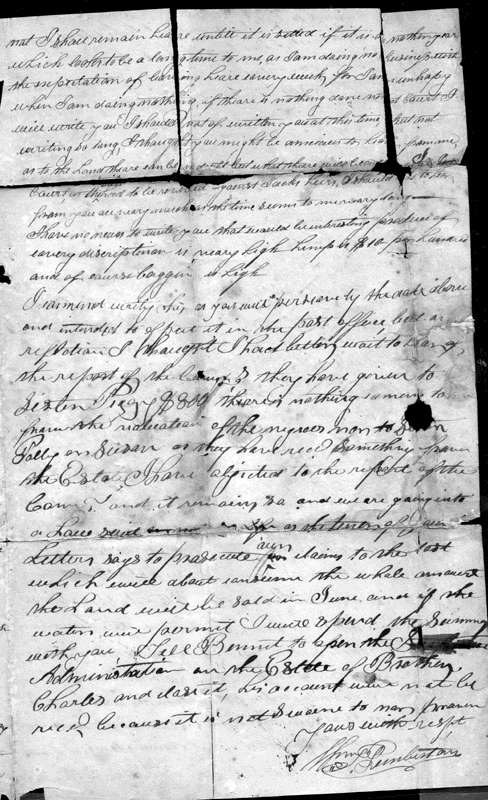 not I shall remain heare untill it is settled if it is nothing or
which looks to be a long time to me, as I am doing no business with
the expectation of leaving heare every week, for I am unhappy
when I am doing nothing, if theare is nothing done at Court I
will write you I should not of written you at this time but not
writing so long I thought you might be anxious to hear from me,
as to the land theare can be
Court to be against Jacks heirs, I should
from you as the time seems to me very long
I have no news to write you that would be interesting produce of
every description is very high hemp is $10 per hundred
and of course baggin is high
I commend writing this as you will perseave by the date above
and intended to of put it in the post office but on
reflection I thought I had better wait to know
the report of the they have given to
Sister Pegy $800 theare is nothing coming to
from the valuation of the negroes nor to
Polly or Susan as they have recd something from
the Estate I have objected to the report of the
Comrs and it remains so and we are going into
a Law suit as the tenor of
Letters says to prosecute our claims to the last
which will about consume the whole amount
the Land will be sold in June, and if the
waters will permit I will spend the summer
with you, Tell Bennit to open the
Administration on the Estate of Brother
Charles and close it, his account will not be
recd because it is not sworne to nor proven
Yours with respt,
Pemberton